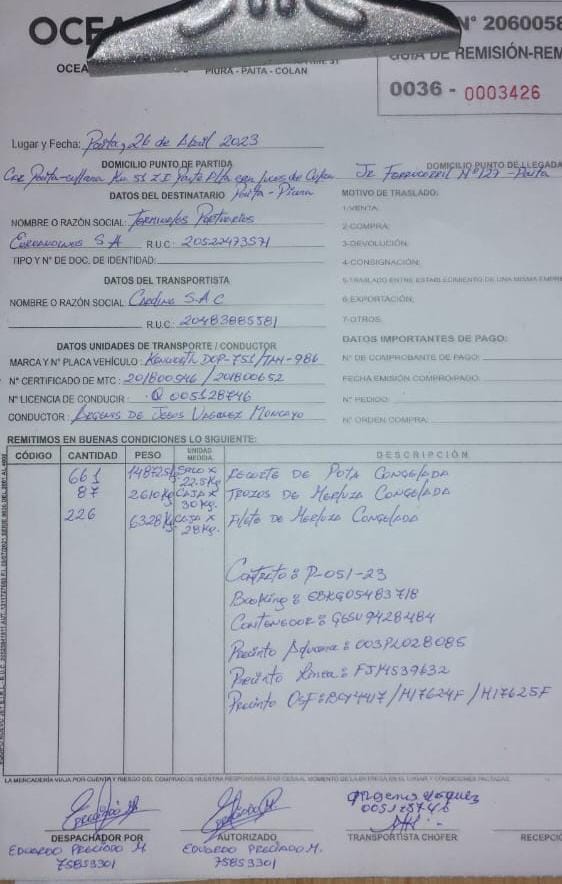 OCEA
N° 2060058
GUIA DE REMISIÓN-REM
OCEA
PIURA - PAITA - COLAN
0036 - 0003426
Lugar y Fecha: Paita, 26 de Abril 2023
DOMICILIO PUNTO DE PARTIDA
DOMICILIO PUNTO DE LLEGADA
Car Paita-sullana Km 51 Z.I Parte Alta con Luces de Cofen
Jr Ferrocarril N°127 - Paita
DATOS DEL DESTINATARIO Paita - Piura
MOTIVO DE TRASLADO:
1-VENTA:
NOMBRE O RAZÓN SOCIAL: Terminales Portuarios
2-COMPRA:
Euroandinos S A R.U.C: 20522473571
3-DEVOLUCIÓN:
TIPO Y N° DE DOC. DE IDENTIDAD:
4-CONSIGNACIÓN:
DATOS DEL TRANSPORTISTA
5-TRASLADO ENTRE ESTABLECIMIENTO DE UNA MISMA EMPRE
NOMBRE O RAZÓN SOCIAL: S.A.C
6-EXPORTACIÓN:
R.U.C: 20483885581
7-OTROS:
DATOS UNIDADES DE TRANSPORTE / CONDUCTOR
DATOS IMPORTANTES DE PAGO:
MARCA Y N° PLACA VEHÍCULO: Kenworth DOP-751/TAH-986
N° DE COMPROBANTE DE PAGO:
N° CERTIFICADO DE MTC: 201800546 / 201800652
FECHA EMISIÓN COMPRO/PAGO:
N° LICENCIA DE CONDUCIR: Q 005128746
N° PEDIDO:
CONDUCTOR: de Jesus Vasquez Moncayo
N° ORDEN COMPRA:
REMITIMOS EN BUENAS CONDICIONES LO SIGUIENTE:
CÓDIGO CANTIDAD PESO UNIDAD MEDIDA DESCRIPCIÓN
661 14872.5Kg Saco x 22.5Kg Recorte de Pota Congelada
87 2610Kg Caja x 30Kg. Trozos de Merluza Congelada
226 6328Kg Caja x 28Kg. Filete de Merluza Congelada
Contrato: P-051-23
Booking: EBKG05483718
Contenedor: GESU9428484
Precinto Aduana: 003PL028085
Precinto Linea: FJM539632
Precinto OSF: BCY4417 / H17624F / H17625F
LA MERCADERÍA VIAJA POR CUENTA Y RIESGO DEL COMPRADOR NUESTRA RESPONSABILIDAD CESA AL MOMENTO DE LA ENTREGA EN EL LUGAR Y CONDICIONES PACTADAS.
Vasquez
005128746
DESPACHADOR POR
AUTORIZADO
TRANSPORTISTA CHOFER
RECEPCIO
Eduardo Preciado M
75853301
Eduardo Preciado M.
75853301